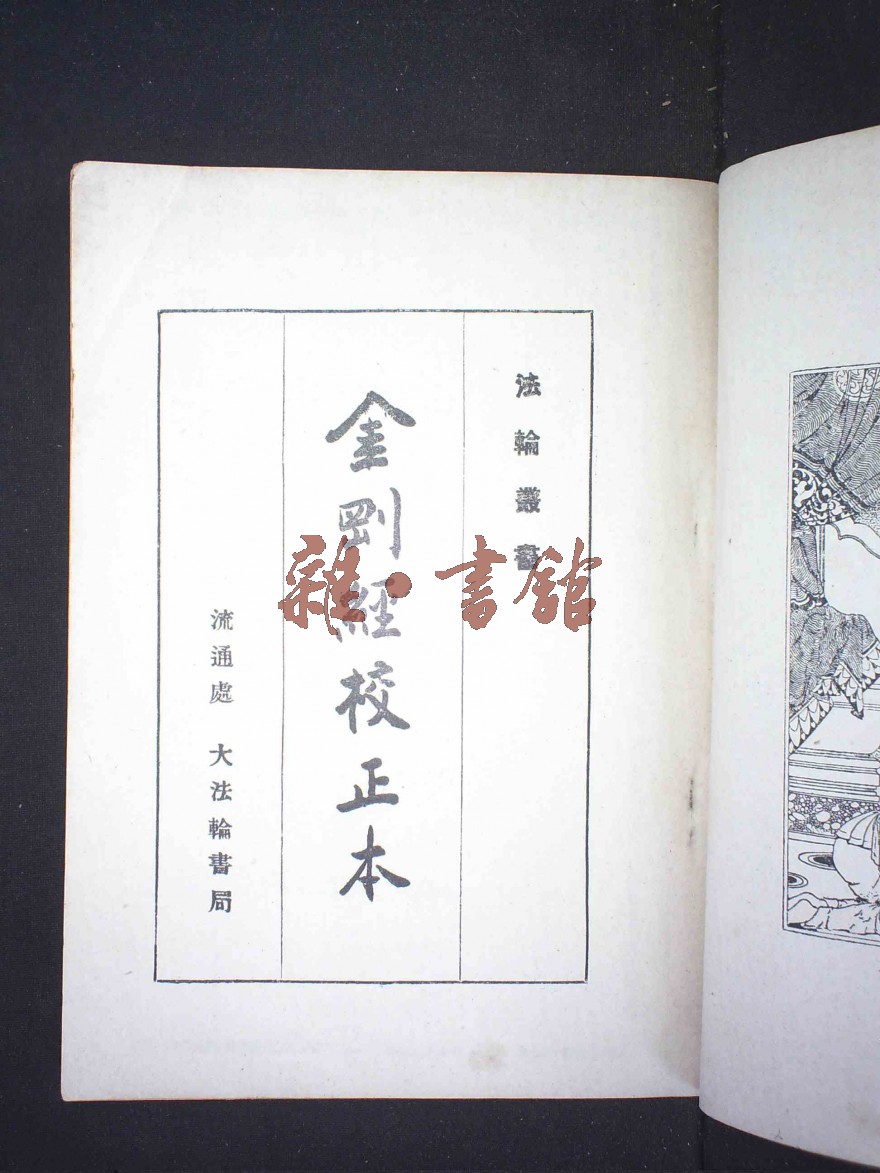 法輪叢書
金剛經校正本
流通處 大法輪書局
雜·書館